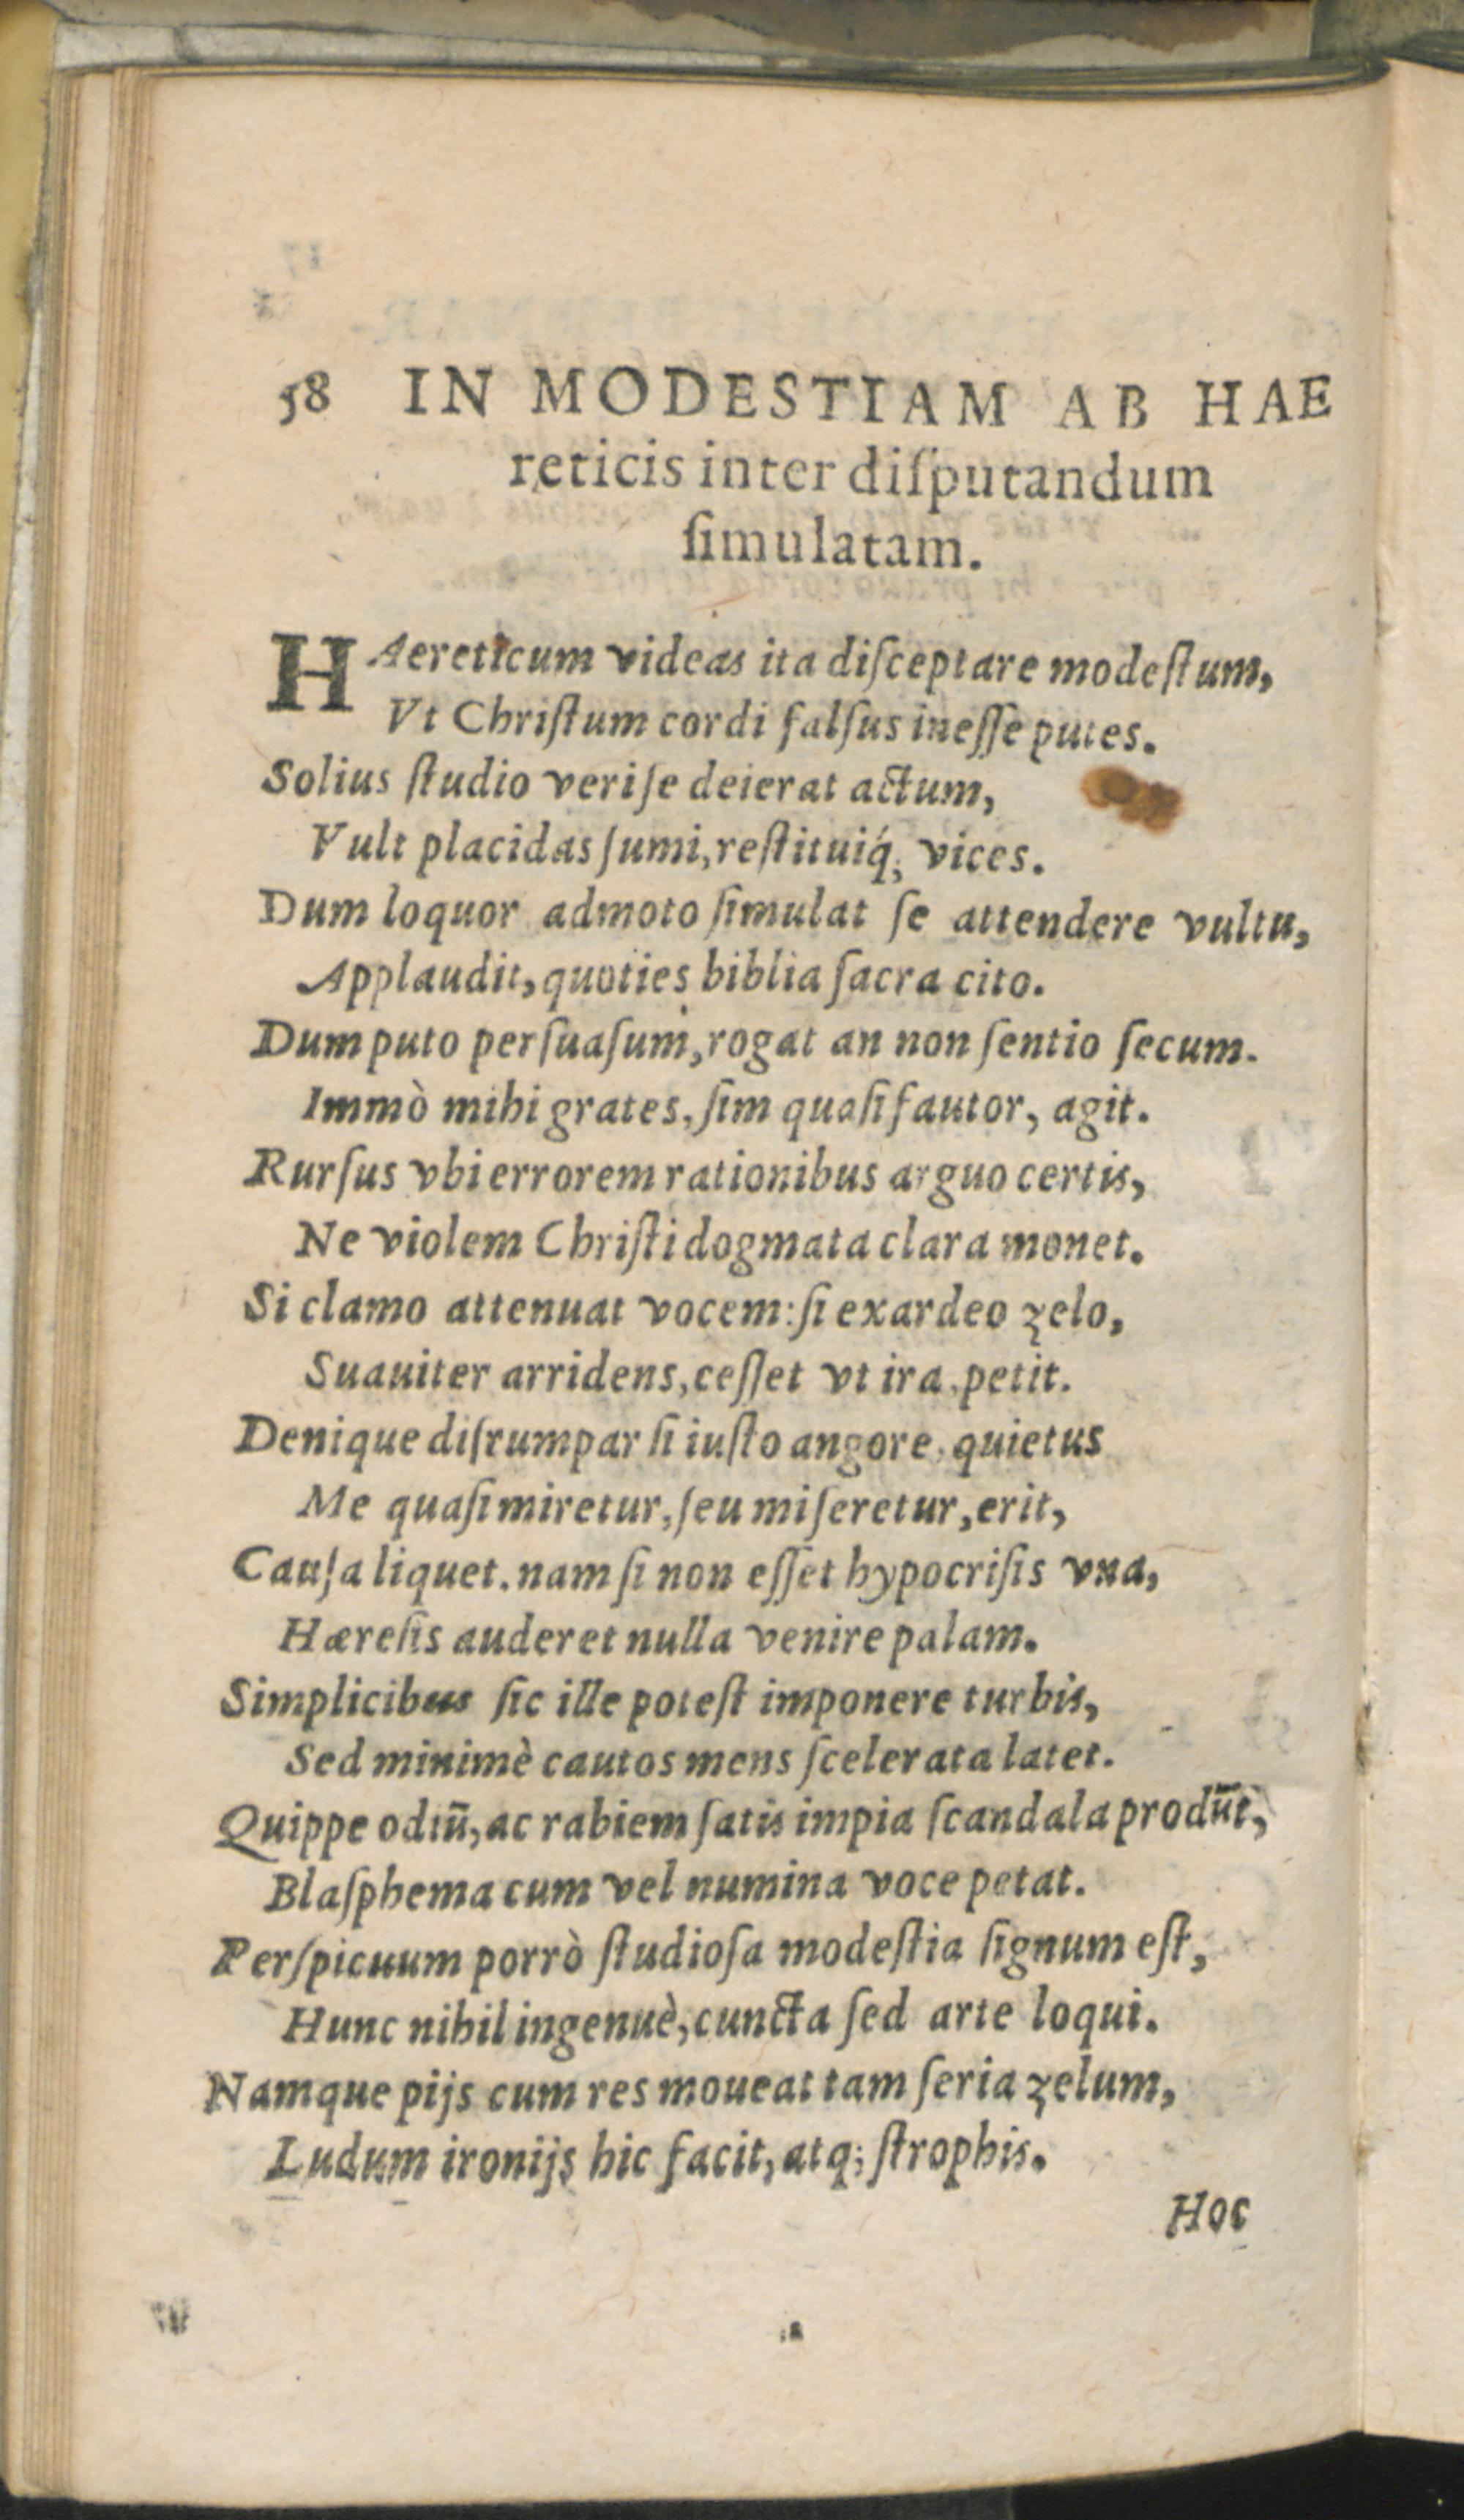 58 IN MODESTIAM AB HAE
reticis inter diſputandum
ſimulatam.
HAereticum videas ita diſceptare modeſtum,
Vt Chriſtum cordi falſus ineſſe putes.
Solius ſtudio veri ſe deierat actum,
Vult placidas ſumi, reſtituiq́; vices.
Dum loquor admoto ſimulat ſe attendere vultu,
Applaudit, quoties biblia ſacra cito.
Dum puto perſuaſum, rogat an non ſentio ſecum.
Immò mihi grates, ſim quaſi fautor, agit.
Rurſus vbi errorem rationibus arguo certis,
Ne violem Chriſti dogmata clara monet.
Si clamo attenuat vocem: ſi exardeo zelo,
Suauiter arridens, ceſſet vt ira, petit.
Denique diſrumpar ſi iuſto angore, quietus
Me quaſi miretur, ſeu miſeretur, erit,
Cauſa liquet. nam ſi non eſſet hypocriſis vna,
Hæreſis auderet nulla venire palam.
Simplicibus ſic ille poteſt imponere turbis,
Sed minimè cautos mens ſcelerata latet.
Quippe odiū, ac rabiem ſatis impia ſcandala produ̅t,
Blaſphema cum vel numina voce petat.
Perſpicuum porrò ſtudioſa modeſtia ſignum eſt,
Hunc nihil ingenuè, cuncta ſed arte loqui.
Namque pijs cum res moueat tam ſeria zelum,
Ludum ironijs hic facit, atq; ſtrophis.
Hoc